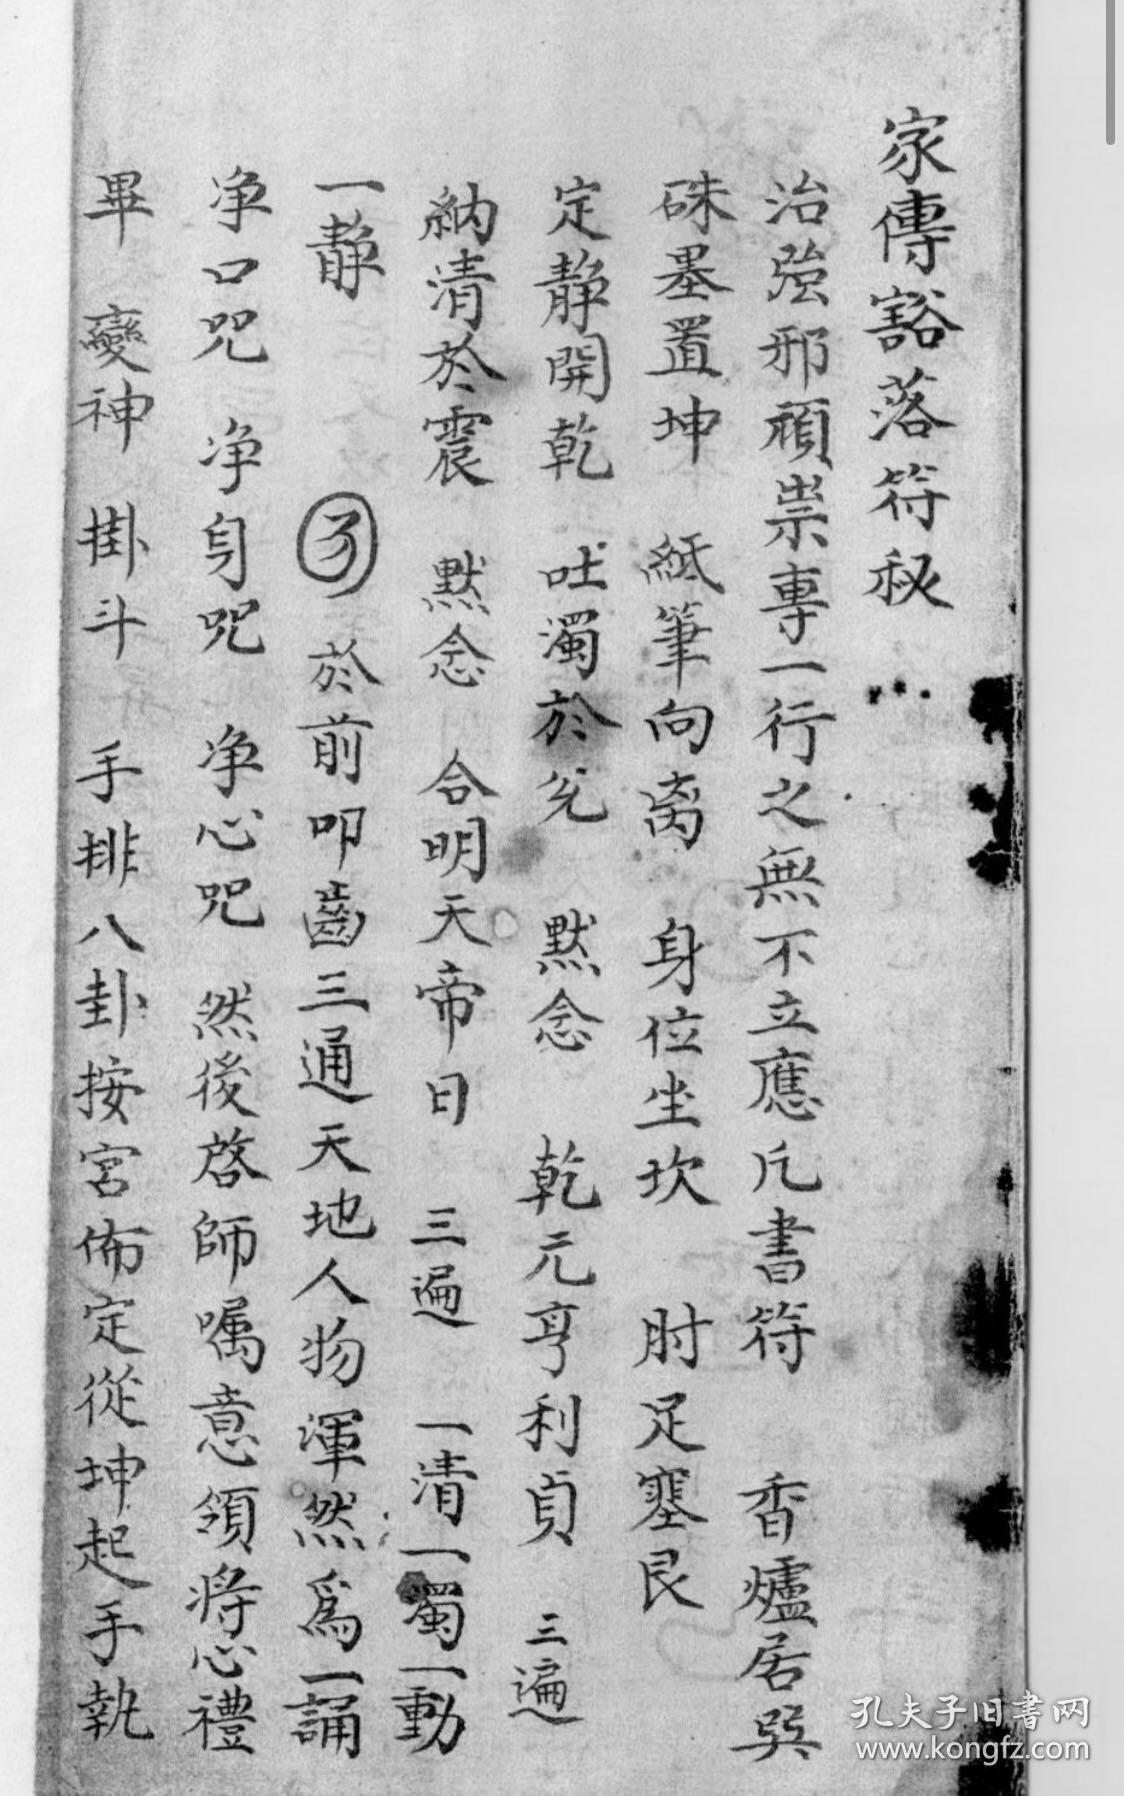 家傳豁落符秘
治強邪頑祟專一行之無不立應凡書符 香爐居巽
硃墨置坤 紙筆向离 身位坐坎 肘足塞艮
定静開乾 吐濁於兌 默念 乾元亨利貞 三遍
納清於震 默念 合明天帝日 三遍 一清一濁一動
一静 於前叩齒三通天地人物渾然爲一誦
净口咒 净身咒 净心咒 然後啓師嘱意領將心禮
畢 變神 掛斗 手排八卦按宮佈定從坤起手執
孔夫子旧書网
www.kongfz.com